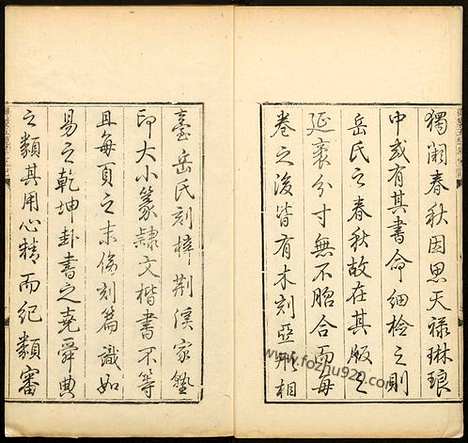 獨闕春秋因思天禄琳琅
中或有其書命細檢之則
岳氏之春秋故在其版之
延袤分寸無不脗合而每
卷之後皆有木刻亞形相
臺岳氏刻梓荆溪家塾
印大小篆隸文楷書不等
且每頁之末傍刻篇識如
易之乾坤卦書之堯舜典
之類其用心精而紀類審
www.fozhu920.com